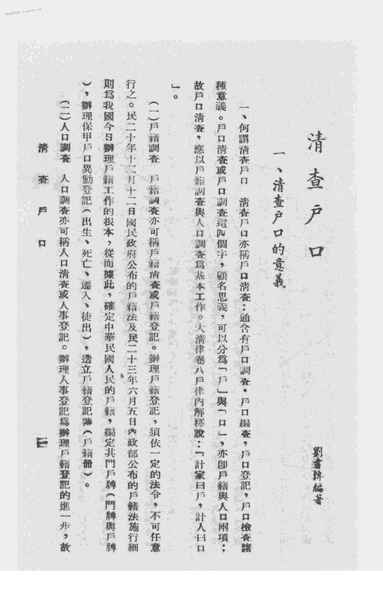 清查戶口
劉書傳編著
一、清查戶口的意義
一、何謂清查戶口　清查戶口亦稱戶口清查；通含有戶口調查，戶口編查，戶口登記，戶口檢查諸
種意義。戶口清查或戶口調查這四個字，顧名思義，可以分爲「戶」與「口」，亦卽戶籍與人口兩項；
故戶口清查，應以戶籍調查與人口調查爲基本工作。大清律卷八戶律內解釋說：「計家曰戶，計人曰口
」。
（一）戶籍調查　戶籍調查亦可稱戶籍清查或戶籍登記。辦理戶籍登記，須依一定的法令，不可任意
行之。民二十年十二月十二日國民政府公布的戶籍法及民二十三年六月五日內政部公布的戶籍法施行細
則爲我國今日辦理戶籍工作的根本，從而據此，確定中華民國人民的戶籍，編定其門戶牌（門牌與戶牌
），辦理保甲戶口異動登記（出生、死亡、遷入、徒出），造立戶籍登記簿（戶籍冊）。
（二）人口調查　人口調查亦可稱人口清查或人事登記。辦理人事登記爲辦理戶籍登記的進一步，故
清查戶口
一